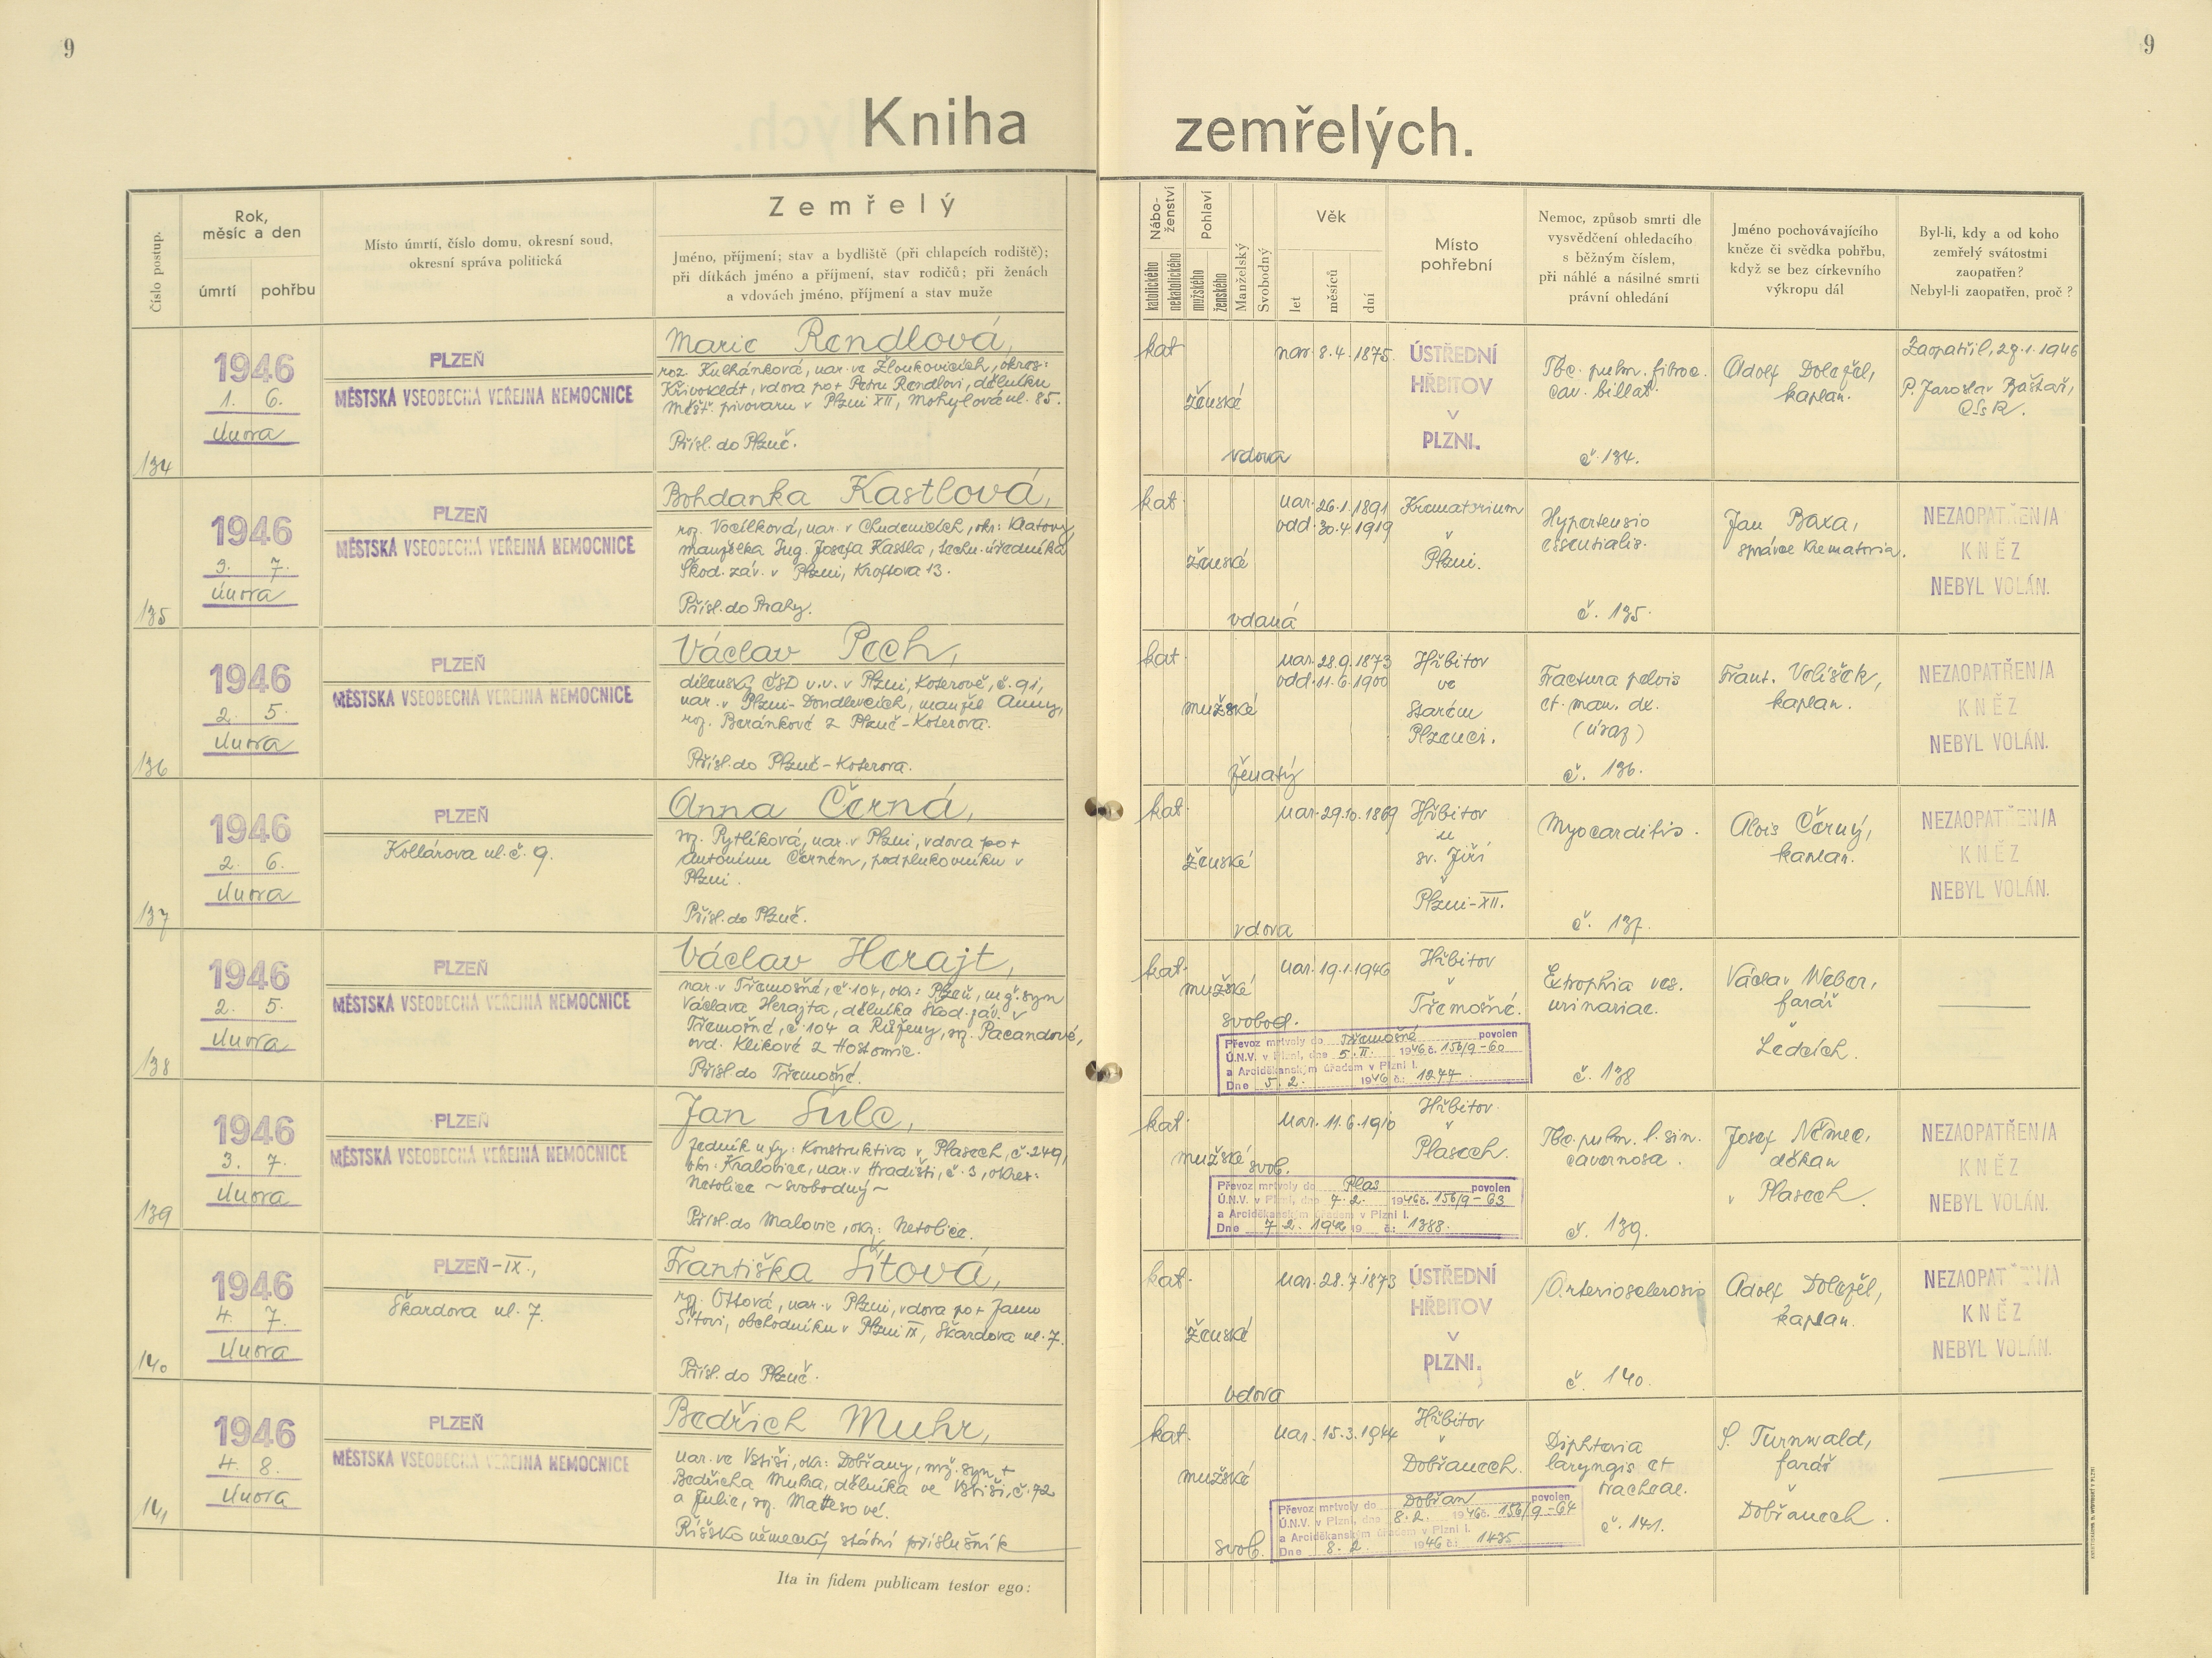 9
9
Kniha zemřelých.
Číslo postup.
Rok,
měsíc a den
úmrtí
pohřbu
Místo úmrtí, číslo domu, okresní soud,
okresní správa politická
Zemřelý
Jméno, příjmení; stav a bydliště (při chlapcích rodiště);
při dítkách jméno a příjmení, stav rodičů; při ženách
a vdovách jméno, příjmení a stav muže
Nábo-
ženství
katolického
nekatolického
Pohlaví
mužského
ženského
Manželský
Svobodný
Věk
let
měsíců
dní
Místo
pohřební
Nemoc, způsob smrti dle
vysvědčení ohledacího
s běžným číslem,
při náhlé a násilné smrti
právní ohledání
Jméno pochovávajícího
kněze či svědka pohřbu,
když se bez církevního
výkropu dál
Byl-li, kdy a od koho
zemřelý svátostmi
zaopatřen?
Nebyl-li zaopatřen, proč?
134
1946
1. 6.
února
PLZEŇ
MĚSTSKÁ VŠEOBECNÁ VEŘEJNÁ NEMOCNICE
Marie Rendlová,
roz. Kuchánková, nar. ve Žloukovicích, okres:
Křivoklát, vdova po + Petru Rendlovi, dělníku
měšť. pivovaru v Plzni XII, Mohylová ul. 85.
Přísl. do Plzně.
kat.
ženské
vdova
nar. 8.4.1875.
ÚSTŘEDNÍ
HŘBITOV
V
PLZNI.
Tbc. pulm. fibroc.
cav. billat.
č. 134.
Adolf Doležel,
kaplan.
Zaopatřil, 29.1.1946
P. Jaroslav Baštař,
CSsR.
135
1946
3. 7.
února
PLZEŇ
MĚSTSKÁ VŠEOBECNÁ VEŘEJNÁ NEMOCNICE
Bohdanka Kastlová,
roz. Vocílková, nar. v Chudenicích, okr: Klatovy,
manželka Ing. Josefa Kastla, techn. úředníka
Škod. záv. v Plzni, Kroftova 13.
Přísl. do Prahy.
kat.
ženské
vdaná
nar. 26.1.1891
odd. 30.4.1919
Krematorium
v
Plzni.
Hypertensio
essentialis.
č. 135.
Jan Baxa,
správce krematoria.
NEZAOPATŘEN/A
KNĚZ
NEBYL VOLÁN.
136
1946
2. 5.
února
PLZEŇ
MĚSTSKÁ VŠEOBECNÁ VEŘEJNÁ NEMOCNICE
Václav Pech,
dílenský ČSD v.v. v Plzni, Koterově, č. 91,
nar. v Plzni-Doudlevcích, manžel Anny,
roz. Beránkové z Plzně-Koterova.
Přísl. do Plzně-Koterova.
kat.
mužské
ženatý
nar. 28.9.1873
odd. 11.6.1900
Hřbitov
ve
Starém
Plzenci.
Fractura pelvis
et. man. dx.
(úraz)
č. 136.
Frant. Volíšek,
kaplan.
NEZAOPATŘEN/A
KNĚZ
NEBYL VOLÁN.
137
1946
2. 6.
února
PLZEŇ
Kollárova ul. č. 9.
Anna Černá,
roz. Pytlíková, nar. v Plzni, vdova po +
Antonínu Černém, podplukovníku v
Plzni.
Přísl. do Plzně.
kat.
ženské
vdova
nar. 29.10.1869
Hřbitov
u
sv. Jiří
v
Plzni-XII.
Myocarditis.
č. 137.
Alois Černý,
kaplan.
NEZAOPATŘEN/A
KNĚZ
NEBYL VOLÁN.
138
1946
2. 5.
února
PLZEŇ
MĚSTSKÁ VŠEOBECNÁ VEŘEJNÁ NEMOCNICE
Václav Herajt,
nar. v Třemošné, č. 104, okr: Plzeň, mž. syn
Václava Herajta, dělníka Škod. záv. v
Třemošné, č. 104 a Růženy, roz. Pacandové,
ovd. Klikové z Hostomic.
Přísl. do Třemošné.
kat.
mužské
svobod.
nar. 19.1.1946
Hřbitov
v
Třemošné.
Převoz mrtvoly do Třemošné povolen
Ú.N.V. v Plzni, dne 5.II. 1946 č. 156/9-60
a Arciděkanským úřadem v Plzni I.
Dne 5.2. 1946 č.: 1277
Extrophia ves.
urinariae.
č. 138
Václav Weber,
farář
v
Ledcích.
139
1946
3. 7.
února
PLZEŇ
MĚSTSKÁ VŠEOBECNÁ VEŘEJNÁ NEMOCNICE
Jan Šulc,
zedník u fy: Konstruktiva v Plasech, č. 249,
okr: Kralovice, nar. v Hradišti, č. 3, okres:
Netolice ~ svobodný ~
Přísl. do Malovic, okr: Netolice.
kat.
mužské
svob.
nar. 11.6.1910
Hřbitov
v
Plasech.
Převoz mrtvoly do Plas povolen
Ú.N.V. v Plzni, dne 7.2. 1946 č. 156/9-63
a Arciděkanským úřadem v Plzni I.
Dne 7.2. 1946 19 č.: 1388.
Tbc. pulm. l. sin.
cavernosa.
č. 139.
Josef Němec,
děkan
v Plasech.
NEZAOPATŘEN/A
KNĚZ
NEBYL VOLÁN.
140
1946
4. 7.
února
PLZEŇ-IX.,
Škardova ul. 7.
Františka Šítová,
roz. Ottová, nar. v Plzni, vdova po + Janu
Šítovi, obchodníku v Plzni IX, Škardova ul. 7.
Přísl. do Plzně.
kat.
ženské
vdova
nar. 28.7.1873
ÚSTŘEDNÍ
HŘBITOV
V
PLZNI.
Arteriosclerosis
č. 140.
Adolf Doležel,
kaplan.
NEZAOPATŘEN/A
KNĚZ
NEBYL VOLÁN.
141
1946
4. 8.
února
PLZEŇ
MĚSTSKÁ VŠEOBECNÁ VEŘEJNÁ NEMOCNICE
Bedřich Muhr,
nar. ve Vstiši, okr: Dobřany, mž. syn +
Bedřicha Muhra, dělníka ve Vstiši, č. 72
a Julie, roz. Matesové.
Říšskoněmecký státní příslušník
kat.
mužské
svob.
nar. 15.3.1944
Hřbitov
v
Dobřanech.
Převoz mrtvoly do Dobřan povolen
Ú.N.V. v Plzni, dne 8.2. 1946 č. 156/9-64
a Arciděkanským úřadem v Plzni I.
Dne 8.2. 1946 č.: 1435
Diphteria
laryngis et
tracheae.
č. 141.
S. Turnwald,
farář
v
Dobřanech.
Ita in fidem publicam testor ego: